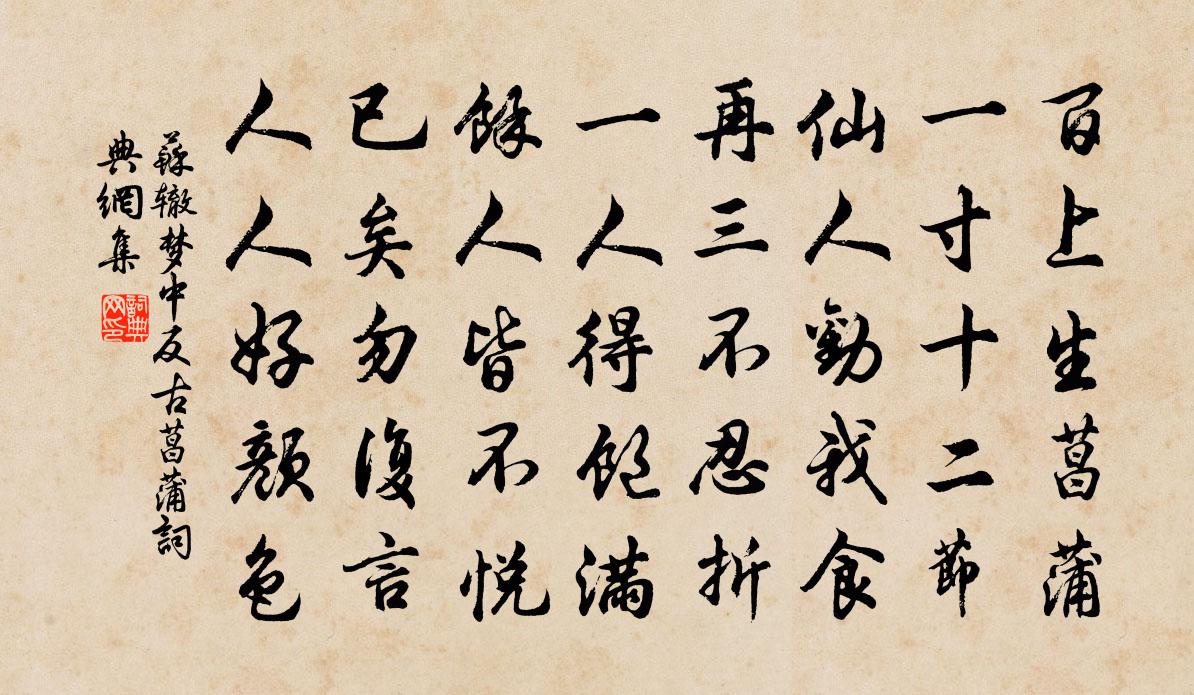 石上生菖蒲
一寸十二節
仙人勸我食
再三不忍折
一人得飽滿
餘人皆不悅
已矣勿復言
人人好顏色
蘇辙梦中反古菖蒲詞
典網集
詞典
网印